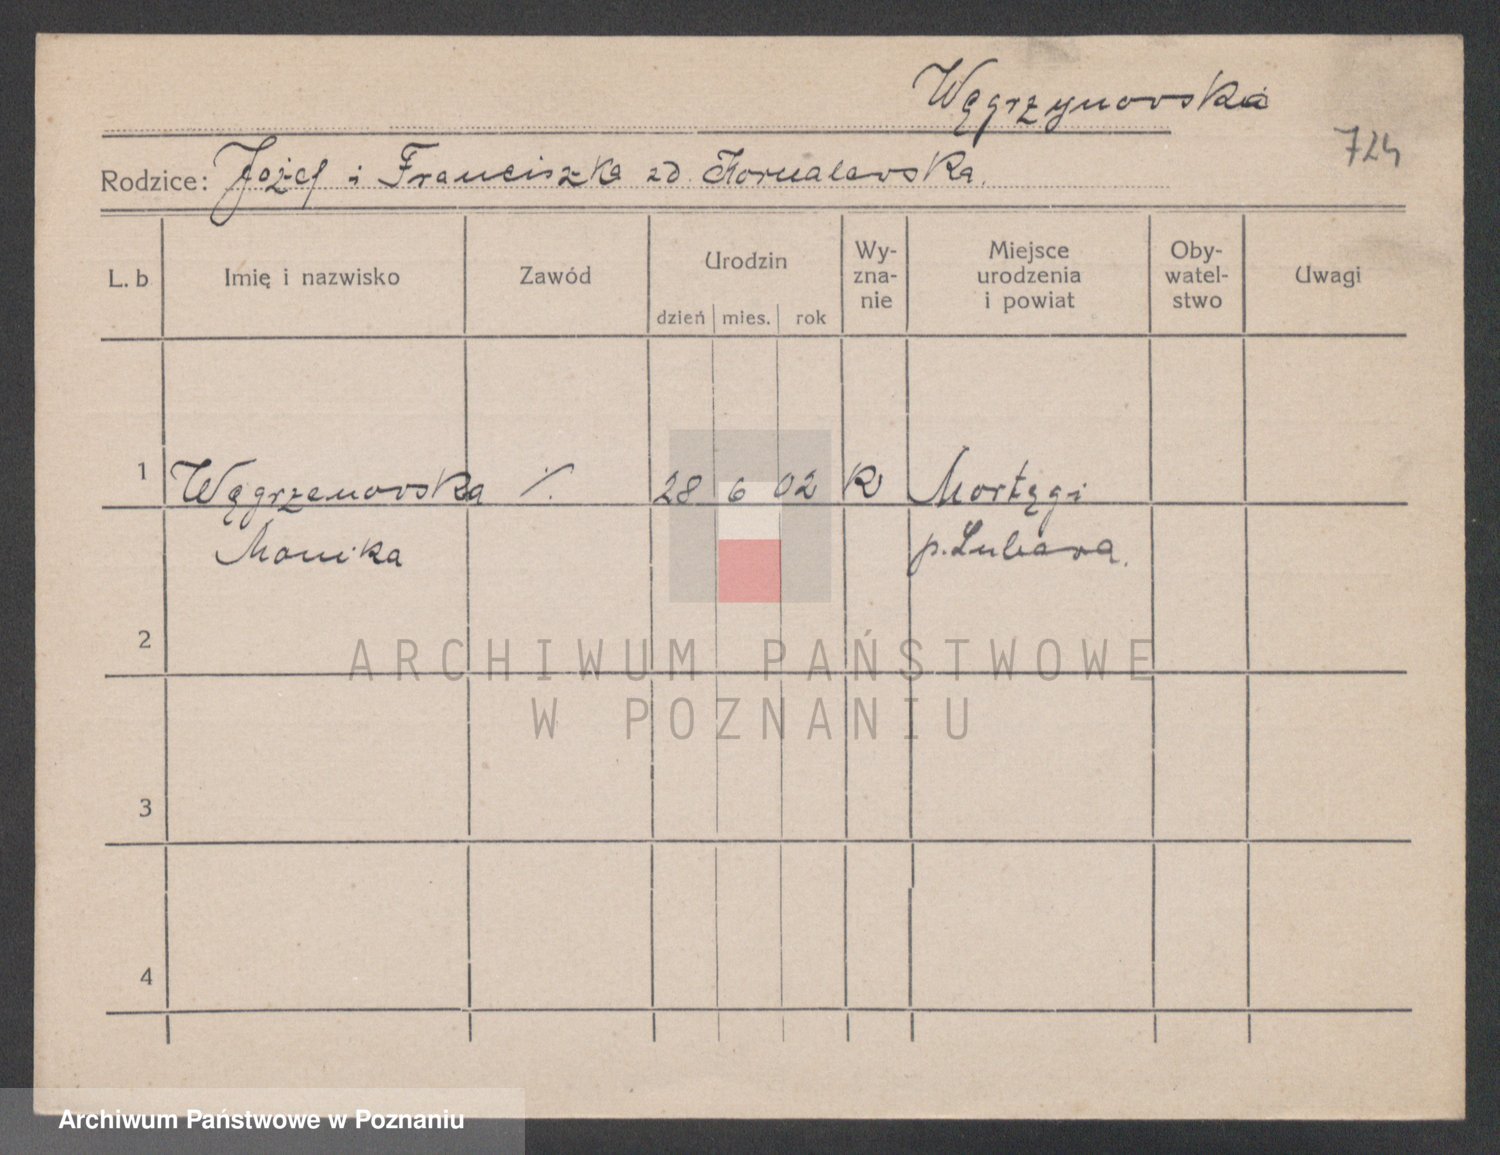 Węgrzynowska
724
Rodzice: Józef i Franciszka zd. Kornalewska.
L. b
Imię i nazwisko
Zawód
Urodzin
dzień mies. rok
Wy-
zna-
nie
Miejsce
urodzenia
i powiat
Oby-
watel-
stwo
Uwagi
1 Węgrzenowska ./. 28 6 02 R Mortęgi
Monika p. Lubawa.
2
3
4
ARCHIWUM PAŃSTWOWE
W POZNANIU
Archiwum Państwowe w Poznaniu